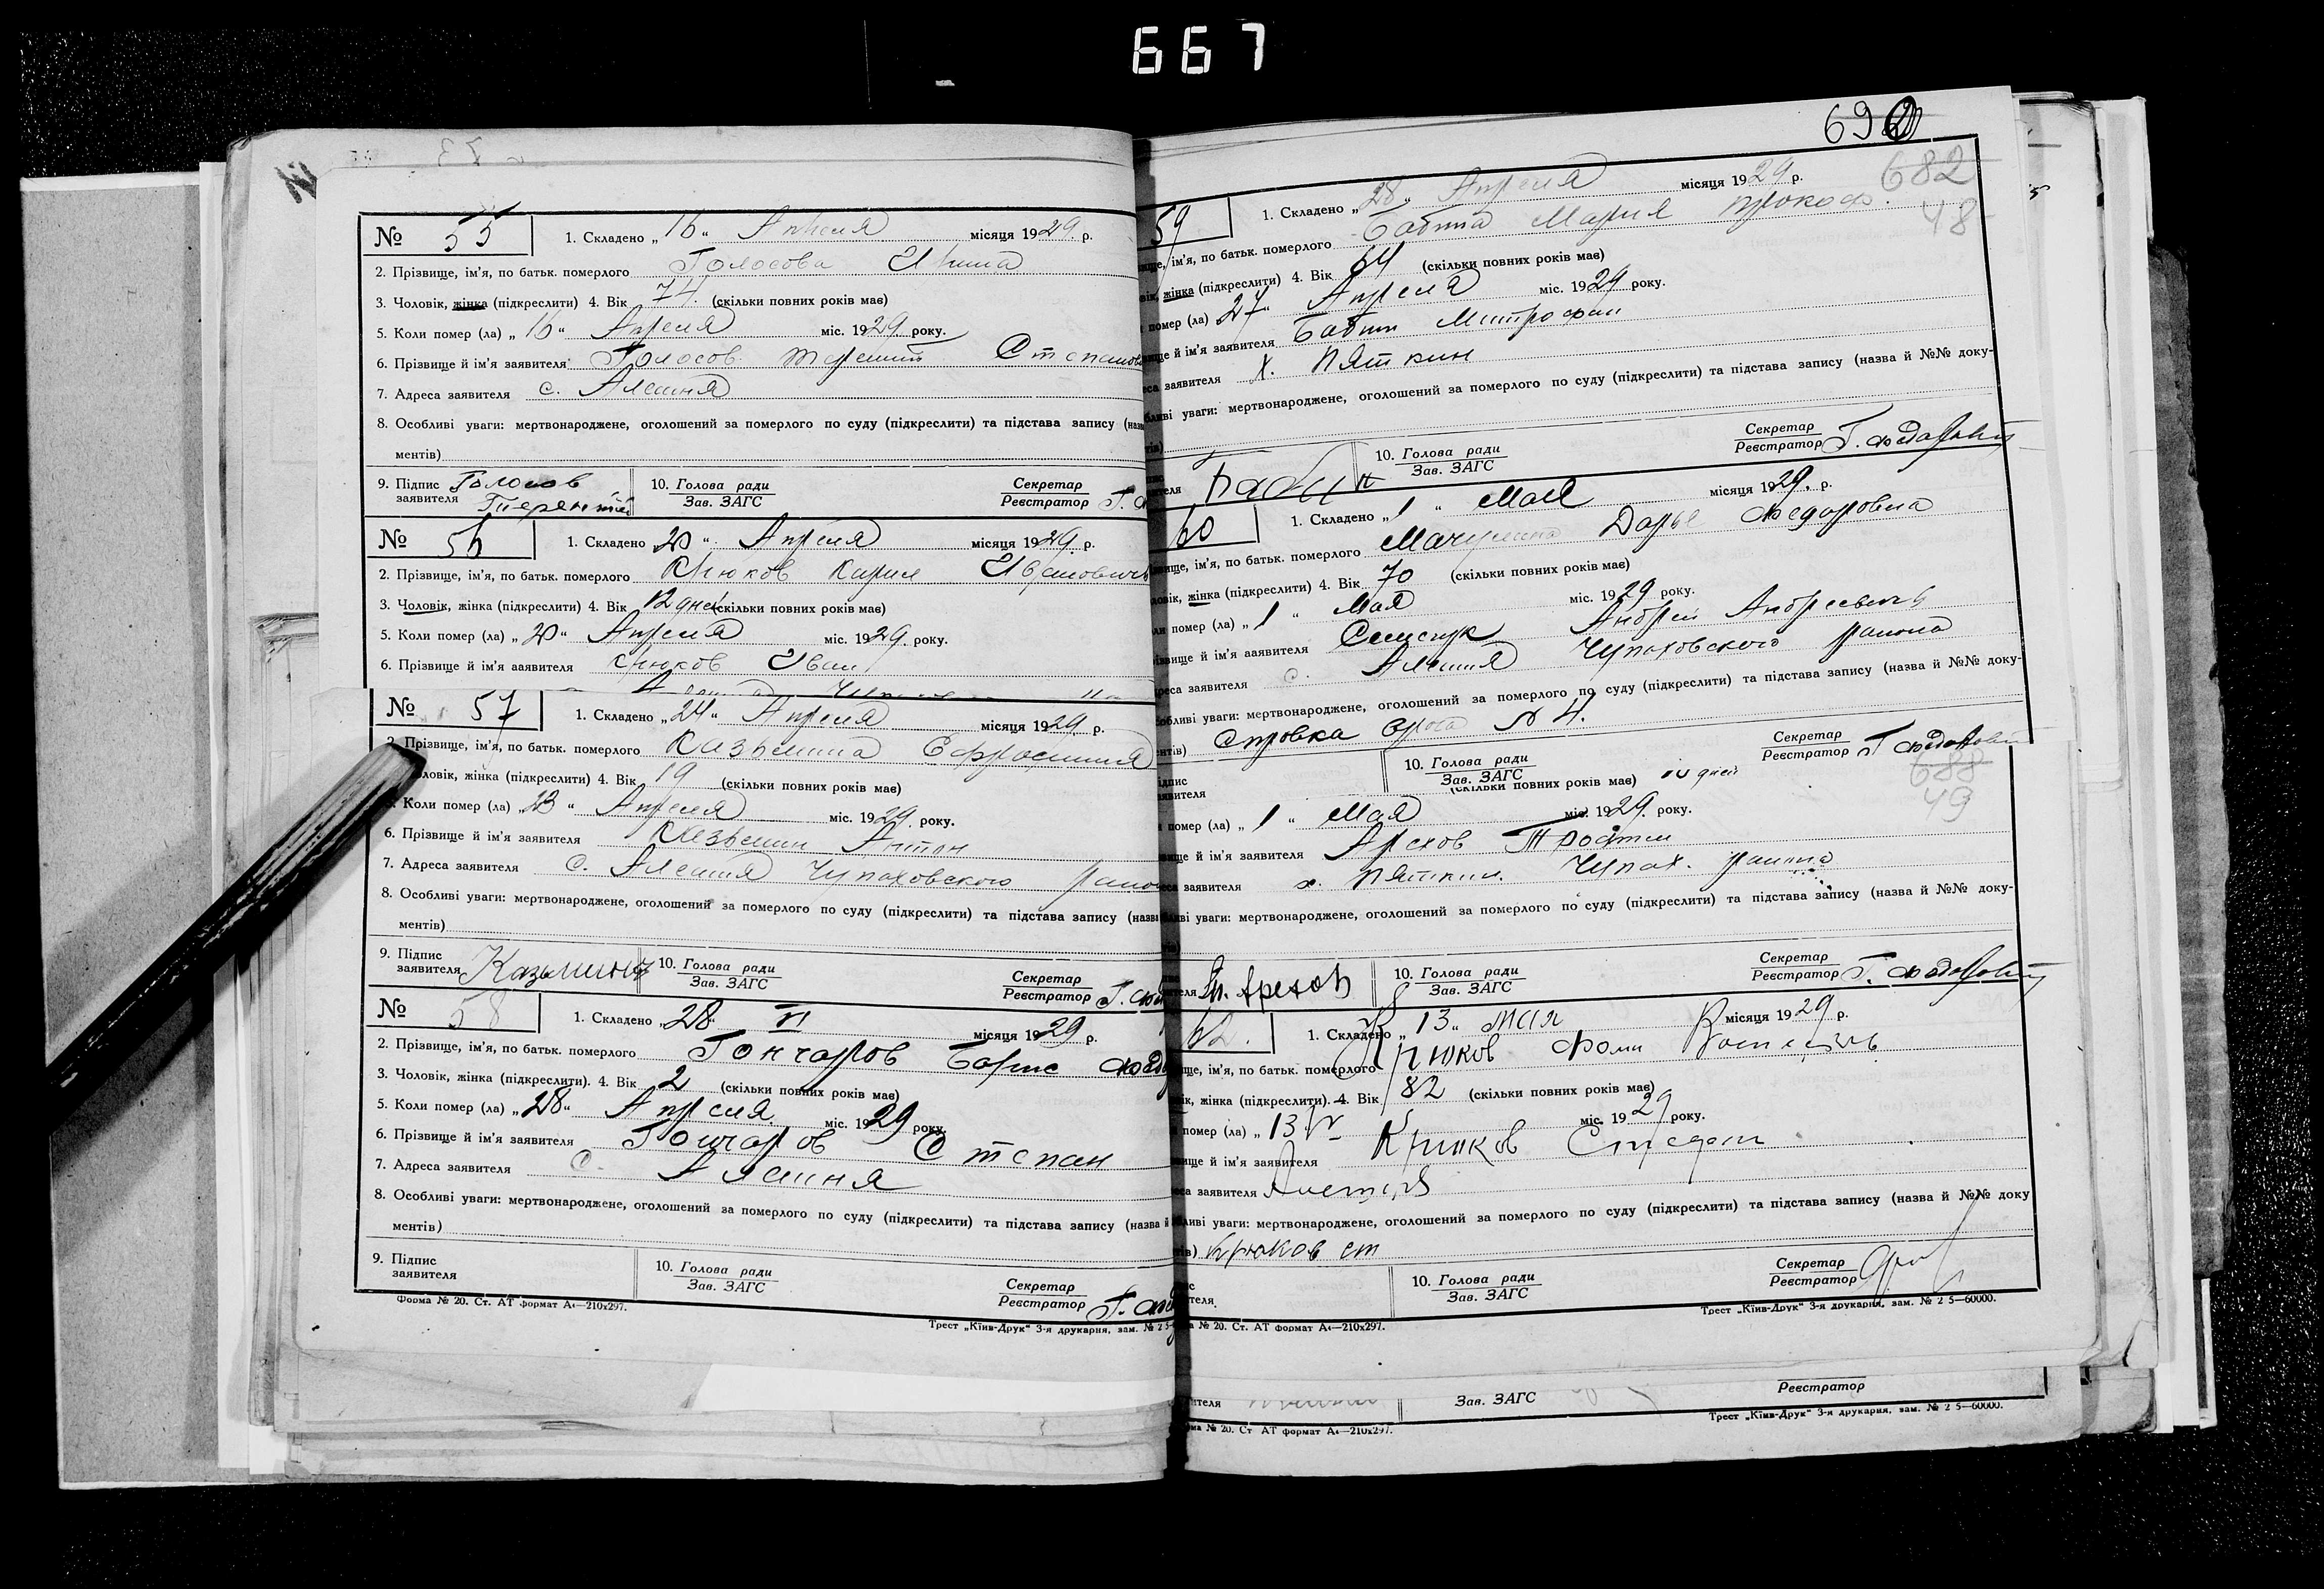 667
№ 55 1. Складено „16“ Апреля місяця 1929. р.
2. Прізвище, ім'я, по батьк. померлого Голосова
3. Чоловік, жінка (підкреслити) 4. Вік 74. (скільки повних років має)
5. Коли помер (ла) „16“ Апреля міс. 1929. року.
6. Прізвище й ім'я заявителя Голосов Терентий Степанов
7. Адреса заявителя с. Алешня
8. Особливі уваги: мертвонароджене, оголошений за померлого по суду (підкреслити) та підстава запису (назв
ментів)
9. Підпис заявителя Голосов Терентий 10. Голова ради Зав. ЗАГС Секретар Реєстратор Г.
№ 56 1. Складено „20“ Апреля місяця 1929. р.
2. Прізвище, ім'я, по батьк. померлого Крюков Иванович
3. Чоловік, жінка (підкреслити) 4. Вік 12 дней (скільки повних років має)
5. Коли помер (ла) „20“ Апреля міс. 1929. року.
6. Прізвище й ім'я заявителя Крюков Иван
№ 57 1. Складено „24“ Апреля місяця 1929. р.
2. Прізвище, ім'я, по батьк. померлого Казьмина Ефросиния
ловік, жінка (підкреслити) 4. Вік 19 (скільки повних років має)
Коли помер (ла) „23“ Апреля міс. 1929. року.
6. Прізвище й ім'я заявителя Казьмин Антон
7. Адреса заявителя с. Алешня Чупаховского район
8. Особливі уваги: мертвонароджене, оголошений за померлого по суду (підкреслити) та підстава запису (назви
ментів)
9. Підпис заявителя 10. Голова ради Зав. ЗАГС Секретар Реєстратор Г.
№ 58 1. Складено „28“ місяця 1929 р.
2. Прізвище, ім'я, по батьк. померлого Гончаров Борис
3. Чоловік, жінка (підкреслити). 4. Вік 2 (скільки повних років має)
5. Коли помер (ла) „28“ Апреля міс. 1929 року.
6. Прізвище й ім'я заявителя Гончаров Степан
7. Адреса заявителя с. Алешня
8. Особливі уваги: мертвонароджене, оголошений за померлого по суду (підкреслити) та підстава запису (назва й
ментів)
9. Підпис заявителя 10. Голова ради Зав. ЗАГС Секретар Реєстратор Г.
Форма № 20. Ст. АТ формат А4—210х297.
Трест „Київ-Друк“ 3-я друкарня, зам. № 2 5
682
48
59 1. Складено „28“ Апреля місяця 1929 р.
ім'я, по батьк. померлого Бабина Мария Прокоф.
жінка (підкреслити) 4. Вік 64 (скільки повних років має)
помер (ла) 27 Апреля міс. 1929 року.
й ім'я заявителя Бабин Митрофан
заявителя х. Пяткин
уваги: мертвонароджене, оголошений за померлого по суду (підкреслити) та підстава запису (назва й №№ доку-
Бабин 10. Голова ради Зав. ЗАГС Секретар Реєстратор
60 1. Складено „1“ Мая місяця 1929. р.
ім'я, по батьк. померлого Дарья Федоровна
жінка (підкреслити) 4. Вік 70 (скільки повних років має)
помер (ла) „1“ Мая міс. 1929 року.
й ім'я заявителя Андрей Андреевич
заявителя с. Алешня Чупаховского района
уваги: мертвонароджене, оголошений за померлого по суду (підкреслити) та підстава запису (назва й №№ доку-
Справка врача № 4.
10. Голова ради Зав. ЗАГС Секретар Реєстратор
(скільки повних років має) дней
688
49
помер (ла) „1“ Мая міс. 1929. року.
й ім'я заявителя Арехов
заявителя х. Пяткин. Чупах. района
уваги: мертвонароджене, оголошений за померлого по суду (підкреслити) та підстава запису (назва й №№ доку-
Арехов 10. Голова ради Зав. ЗАГС Секретар Реєстратор
62. 1. Складено „13“ мая місяця 1929 р.
ім'я, по батьк. померлого Крюков Фома
жінка (підкреслити). 4. Вік 82 (скільки повних років має)
помер (ла) „13 V міс. 1929 року.
й ім'я заявителя Крюков
заявителя
уваги: мертвонароджене, оголошений за померлого по суду (підкреслити) та підстава запису (назва й №№ доку
Крюков ст
10. Голова ради Зав. ЗАГС Секретар Реєстратор
№ 20. Ст. АТ формат А4—210х297.
Трест „Київ-Друк“ 3-я друкарня, зам. № 2 5—60000.
Зав. ЗАГС Реєстратор
№ 20. Ст АТ формат А4—210х297.
Трест „Київ-Друк“ 3-я друкарня, зам. № 2 5—60000.